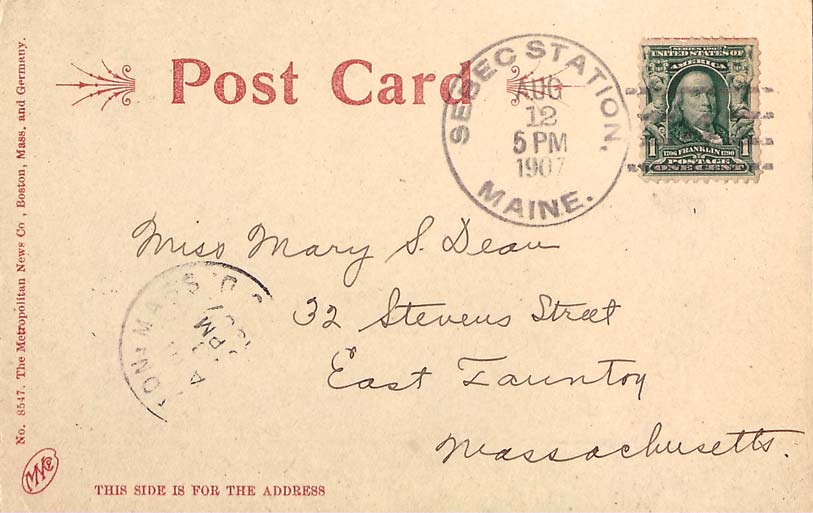 No. 8547. The Metropolitan News Co., Boston, Mass. and Germany.
Post Card
SEBEC STATION,
AUG
12
5 PM
1907
MAINE.
SERIES 1902
UNITED STATES OF
AMERICA
1706 FRANKLIN 1790
1 POSTAGE 1
ONE CENT
Miss Mary S. Dean
32 Stevens Street
East Taunton
Massachusetts.
TON MASS
PM
THIS SIDE IS FOR THE ADDRESS